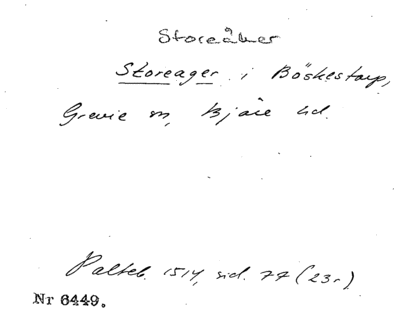 Storeåker
Storeager i Böskestorp,
Grevie sn, Bjäre hd.
Palteb. 1514, sid. 77 (23r)
Nr 6449.